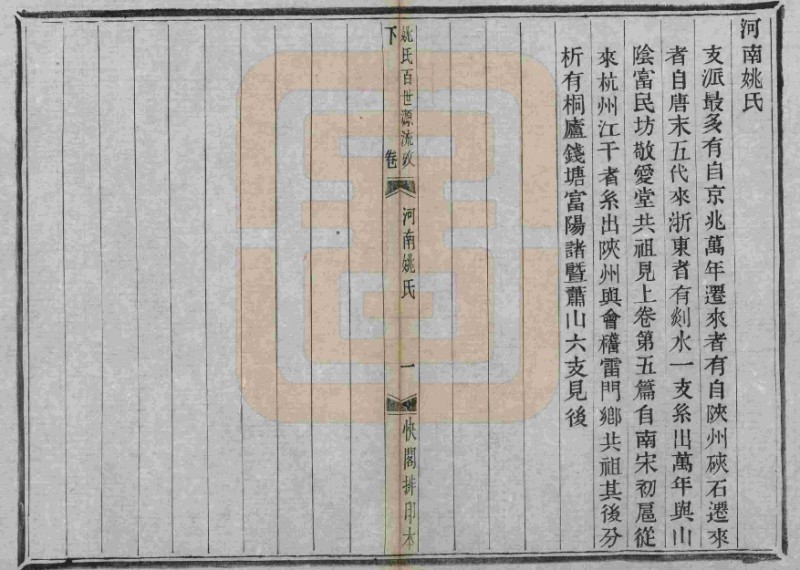 河南姚氏
支派最多有自京兆萬年遷來者有自陝州硤石遷來
者自唐末五代來浙東者有剡水一支系出萬年與山
陰富民坊敬愛堂共祖見上卷第五篇自南宋初扈從
來杭州江干者系出陝州與會稽雷門鄉共祖其後分
析有桐廬錢塘富陽諸暨蕭山六支見後
姚氏百世源流攷
卷下
河南姚氏
一
快閣排印本